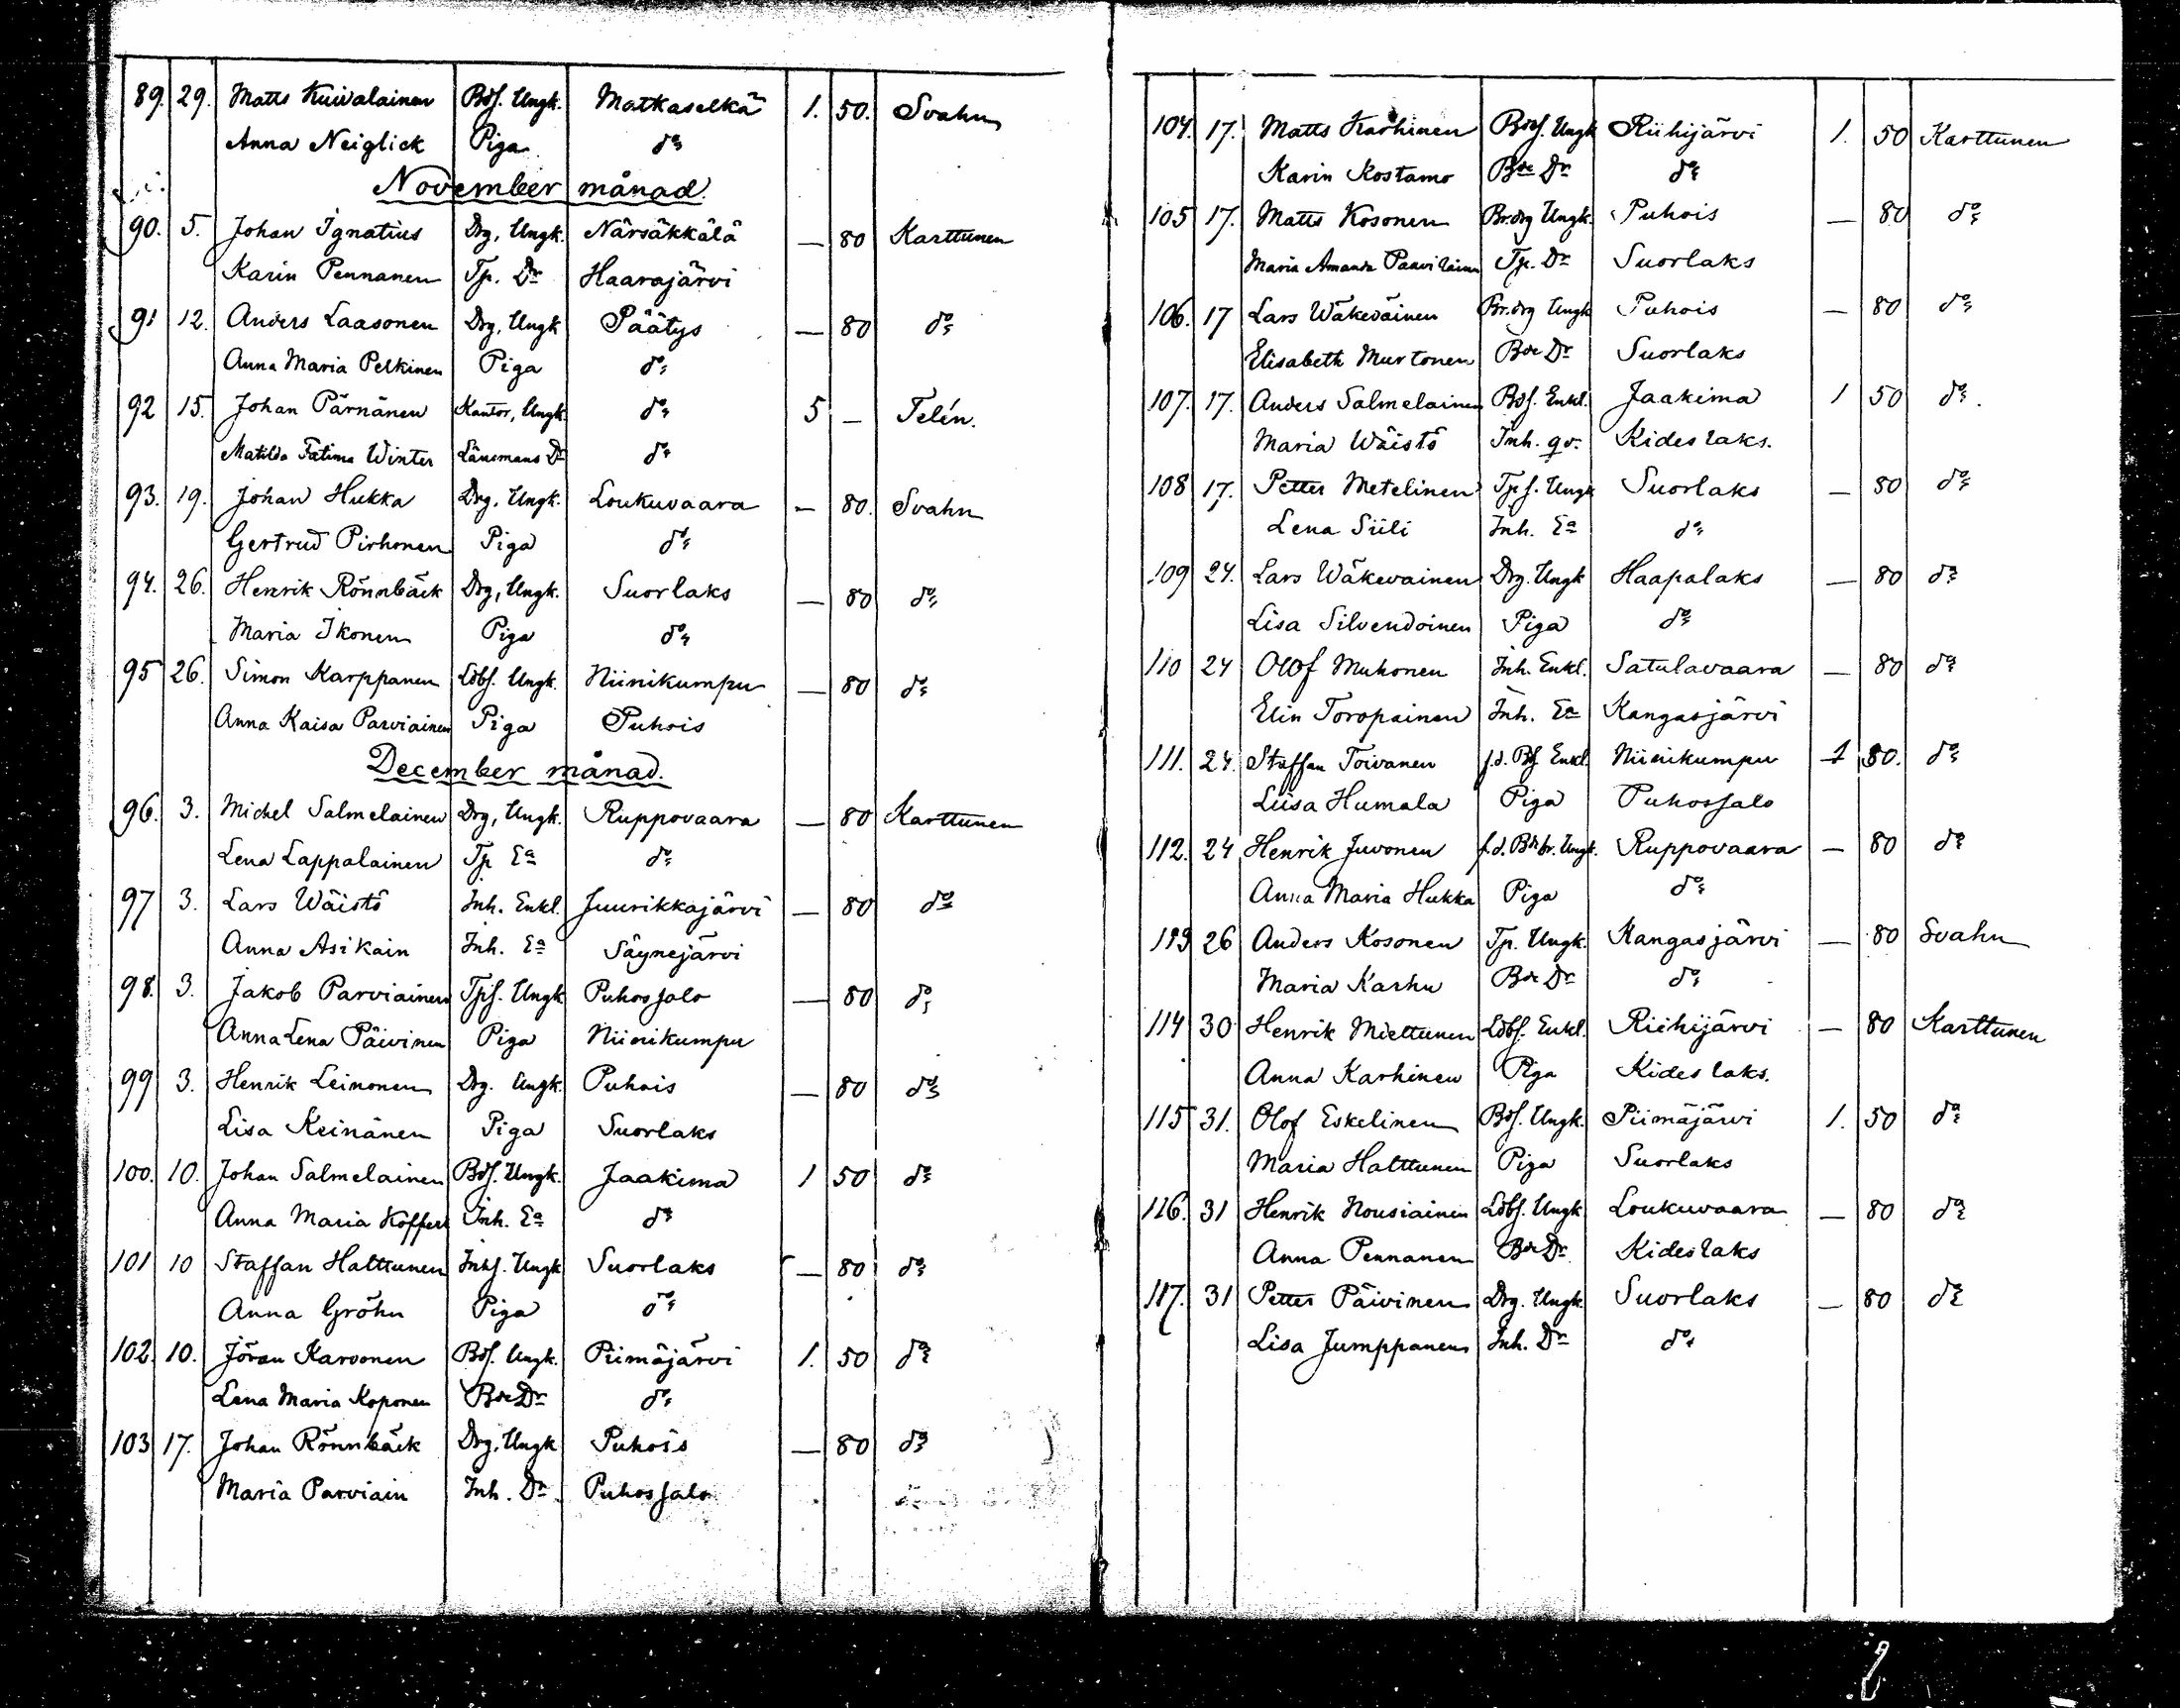 89. 29. Matts Kuivalainen Bdf. Ungk. Matkaselkä 1. 50. Svahn
Anna Neiglick Piga do
November månad.
90. 5. Johan Ignatius Drg, Ungk. Närsäkkälä — 80 Karttunen
Karin Pennanen Tp. Dr Haarajärvi
91 12. Anders Laasonen Drg, Ungk Päätys — 80 do
Anna Maria Pelkinen Piga do
92 15. Johan Pärnänen Kantor, Ungk. do 5 — Telén.
Matilda Fatima Winter Länsmans Dr do
93. 19. Johan Hukka Drg, Ungk. Loukuvaara — 80. Svahn
Gertrud Pirhonen Piga do
94. 26. Henrik Rönnbäck Drg, Ungk. Suorlaks — 80 do
Maria Ikonen Piga do
95 26. Simon Karppanen Ldbf. Ungk. Niinikumpu — 80 do
Anna Kaisa Parviainen Piga Puhois
December månad.
96. 3. Michel Salmelainen Drg, Ungk. Ruppovaara — 80 Karttunen
Lena Lappalainen Tp Ea do
97 3. Lars Wäistö Inh. Enkl. Juurikkajärvi — 80 do
Anna Asikain Inh. Ea Säynejärvi
98. 3. Jakob Parviainen Tpf. Ungk Puhossalo — 80 do
Anna Lena Päivinen Piga Niinikumpu
99 3. Henrik Leinonen Drg. Ungk. Puhois — 80 do
Lisa Keinänen Piga Suorlaks
100. 10. Johan Salmelainen Bdf. Ungk. Jaakima 1 50 do
Anna Maria Koffert Inh. Ea do
101 10 Staffan Halttunen Inhf. Ungk Suorlaks — 80 do
Anna Gröhn Piga do
102. 10. Jöran Karvonen Bdf. Ungk. Piimäjärvi 1. 50 do
Lena Maria Koponen Bde Dr do
103 17. Johan Rönnbäck Drg, Ungk Puhois — 80 do
Maria Parviain Inh. Dr Puhossalo
104. 17. Matts Karhinen Bdf. Ungk Riihijärvi 1. 50 Karttunen
Karin Kostamo Bde Dr do
105 17. Matts Kosonen Br.drg Ungk. Puhois — 80 do
Maria Amanda Paavilainen Tp. Dr Suorlaks
106. 17 Lars Wäkeväinen Br.drg Ungk Puhois — 80 do
Elisabeth Murtonen Bde Dr Suorlaks
107. 17. Anders Salmelainen Bdf. Enkl. Jaakima 1 50 do.
Maria Wäistö Inh. qv. Kideslaks.
108 17. Petter Metelinen Tpf. Ungk Suorlaks — 80 do
Lena Siili Inh. Ea do
109 24. Lars Wäkevainen Drg. Ungk Haapalaks — 80 do
Lisa Silvendoinen Piga do
110 24 Olof Muhonen Inh. Enkl. Satulavaara — 80 do
Elin Toropainen Inh. Ea Kangasjärvi
111. 24. Staffan Toivanen f.d. Bdf Enkl. Niinikumpu 1 80. do
Liisa Humala Piga Puhossalo
112. 24 Henrik Juvonen f.d. Bdebr. Ungk. Ruppovaara — 80 do
Anna Maria Hukka Piga do
113 26 Anders Kosonen Tp. Ungk. Kangasjärvi — 80 Svahn
Maria Karhu Bde Dr do
114 30 Henrik Miettunen Ldbf. Enkl. Riihijärvi — 80 Karttunen
Anna Karhinen Piga Kideslaks.
115 31. Olof Eskelinen Bdf. Ungk. Piimäjärvi 1. 50 do
Maria Halttunen Piga Suorlaks
116. 31 Henrik Nousiainen Ldbf. Ungk Loukuvaara — 80 do
Anna Pennanen Bde Dr Kideslaks
117. 31 Petter Päivinen Drg. Ungk. Suorlaks — 80 do
Lisa Jumppanen Inh. Dr do